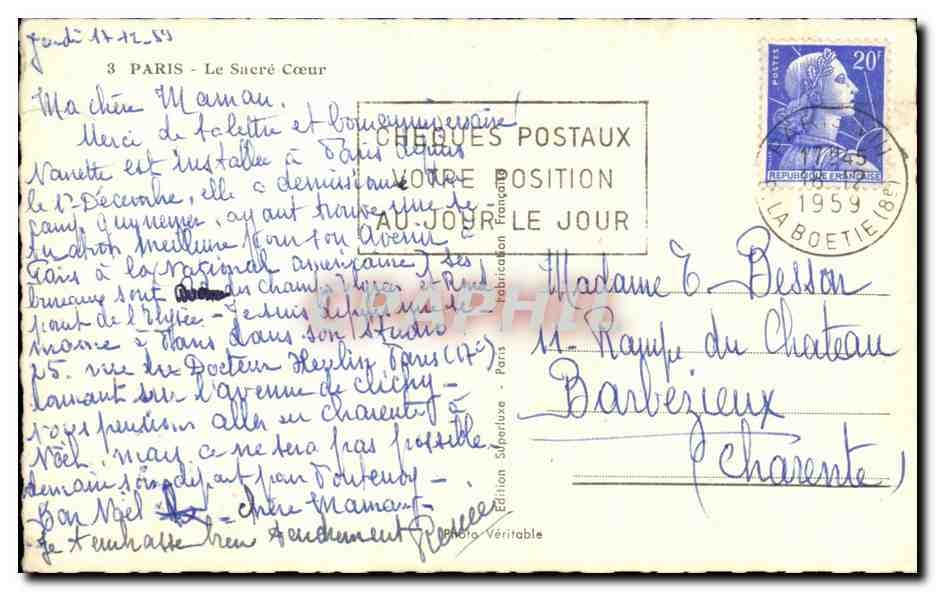 Jeudi 17-12-59
3 PARIS - Le Sacré Cœur
Ma chère Maman.
Merci de ta lettre et bon anniversaire!
Nanette est installée à Paris depuis
le 1er Décembre, elle a démissionné de
ayant trouvé une si-
tuation meilleure pour son avenir à
Paris à la National américaine) ses
bureaux sont du champs Elysées et Rond
point de l'Elysée - Je suis depuis une se-
maine à Paris dans son studio
25. rue du Docteur Heulin Paris (17e)
donnant sur l'avenue de Clichy -
Nous pensions aller en Charente à
Noël, mais ce ne sera pas possible.
demain soir départ pour Fontenoy -
Bon Noël - chère Maman -
Je t'embrasse bien tendrement
CHEQUES POSTAUX
VOTRE POSITION
AU JOUR LE JOUR
POSTES
20F
REPUBLIQUE FRANÇAISE
PARIS
17H45
18-12
1959
R. LA BOETIE (8e)
Madame E. Besson
11- Rampe du Chateau
Barbezieux
(Charente)
Edition Superluxe - Paris - Fabrication Française
Photo Véritable
CPAPHIL